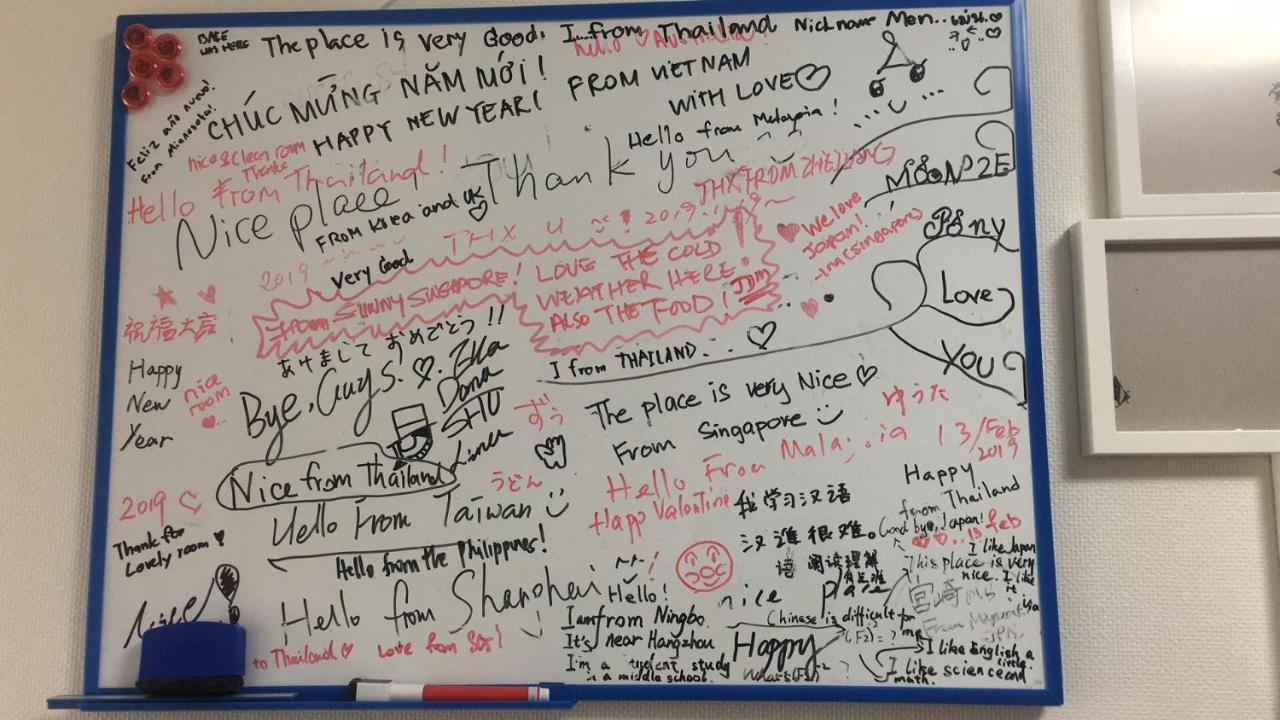 The place is very Good. I from Thailand Nickname Men..
Hello
CHÚC MỪNG NĂM MỚI!
HAPPY NEW YEAR! FROM VIETNAM
WITH LOVE
Feliz año nuevo!
from Minnesota!
nice & Clean room
Thanks
Hello from Thailand!
Hello from Malaysia!
Nice place Thank you
THX FROM ZHEJIANG
FROM Korea and UK
2019
very Good
THX U 2019
We love
Japan!
(Singapore)
from SUNNY SINGAPORE! LOVE THE COLD
WEATHER HERE!
ALSO THE FOOD! JDM
MOON2E
Pony
Love
YOU
祝福大家
Happy
New
Year
nice
room
あけましておめでとう!!
Bye, Guys!
I from THAILAND...
The place is very Nice
From Singapore
ゆうた
13/Feb
2019
Nice from Thailand
うどん
Hello From Taiwan
Hello from the Philippines!
Hello from Shanghai
Hello!
2019
Thanks for
Lovely room
Nice!
to Thailand
Love from
Hello From
Happ Valentine
我学习汉语
汉语很难。
阅读理解
Happy
from Thailand
Good bye, Japan!
13 feb
I like Japan
This place is very
nice. I like
it
宮崎
nice place
Chinese is difficult for
me
I am from Ningbo.
It's near Hangzhou
I'm a student, study
in a middle school.
Happy
I like English a
little.
I like science and
math.